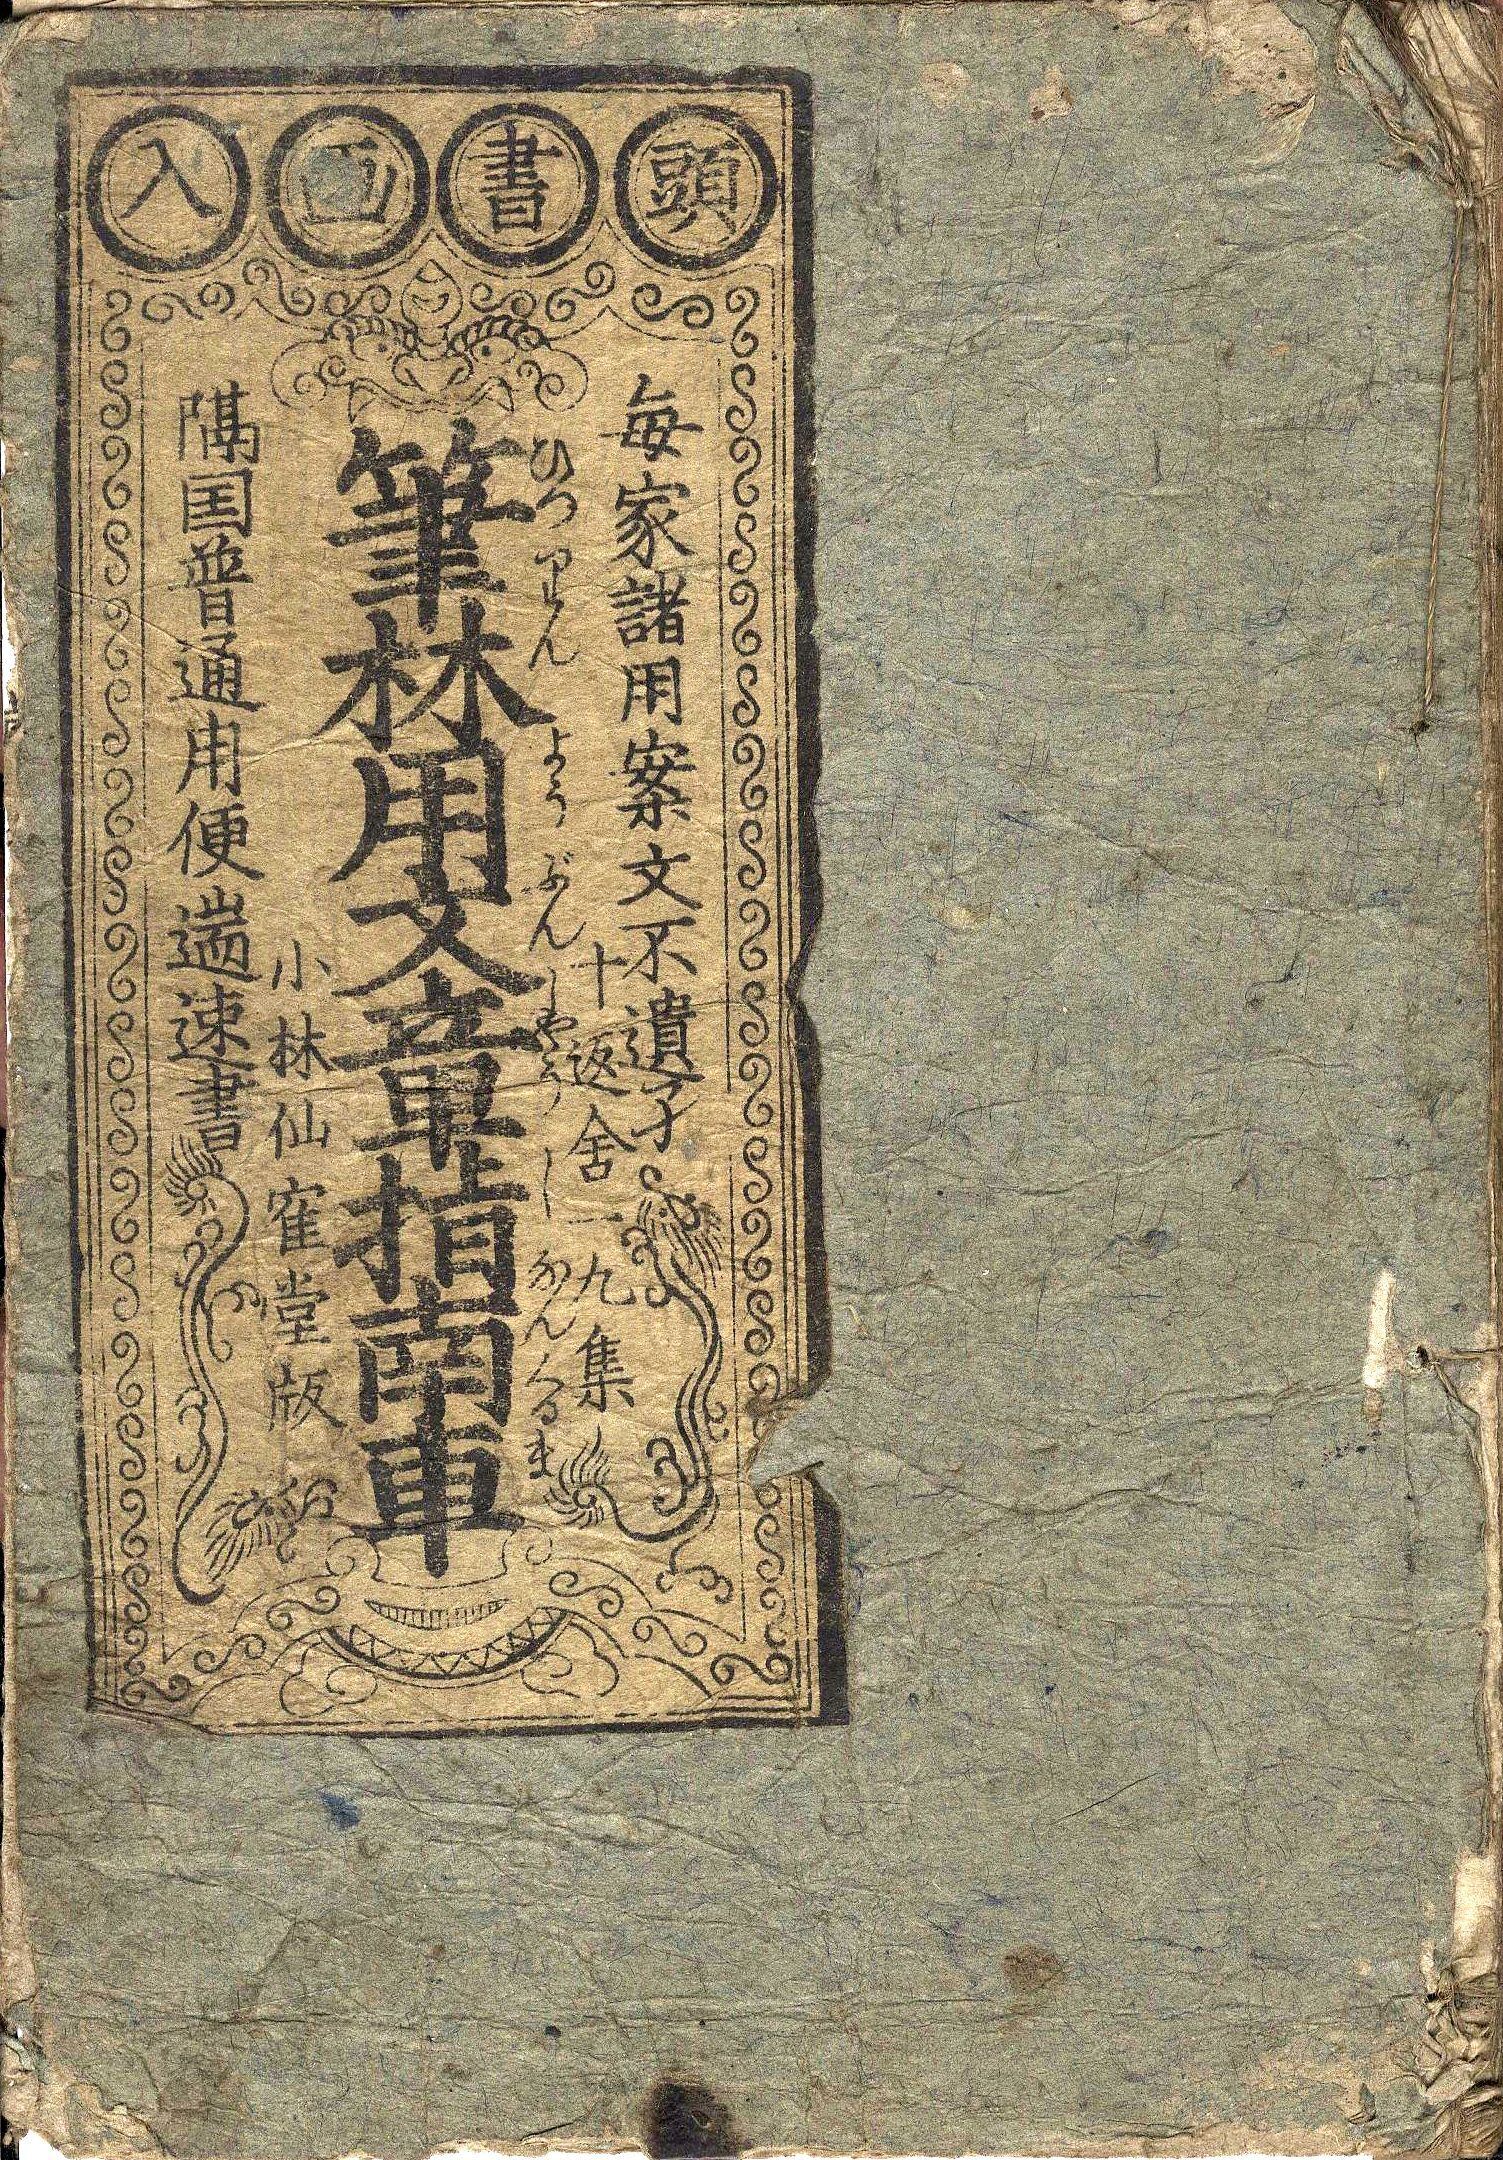 頭書画入
毎家諸用案文不遺了
十返舎一九集
ひつりんようぶんしやうしなんくるま
筆林用文章指南車
小林仙寉堂版
隅国普通用便遄速書